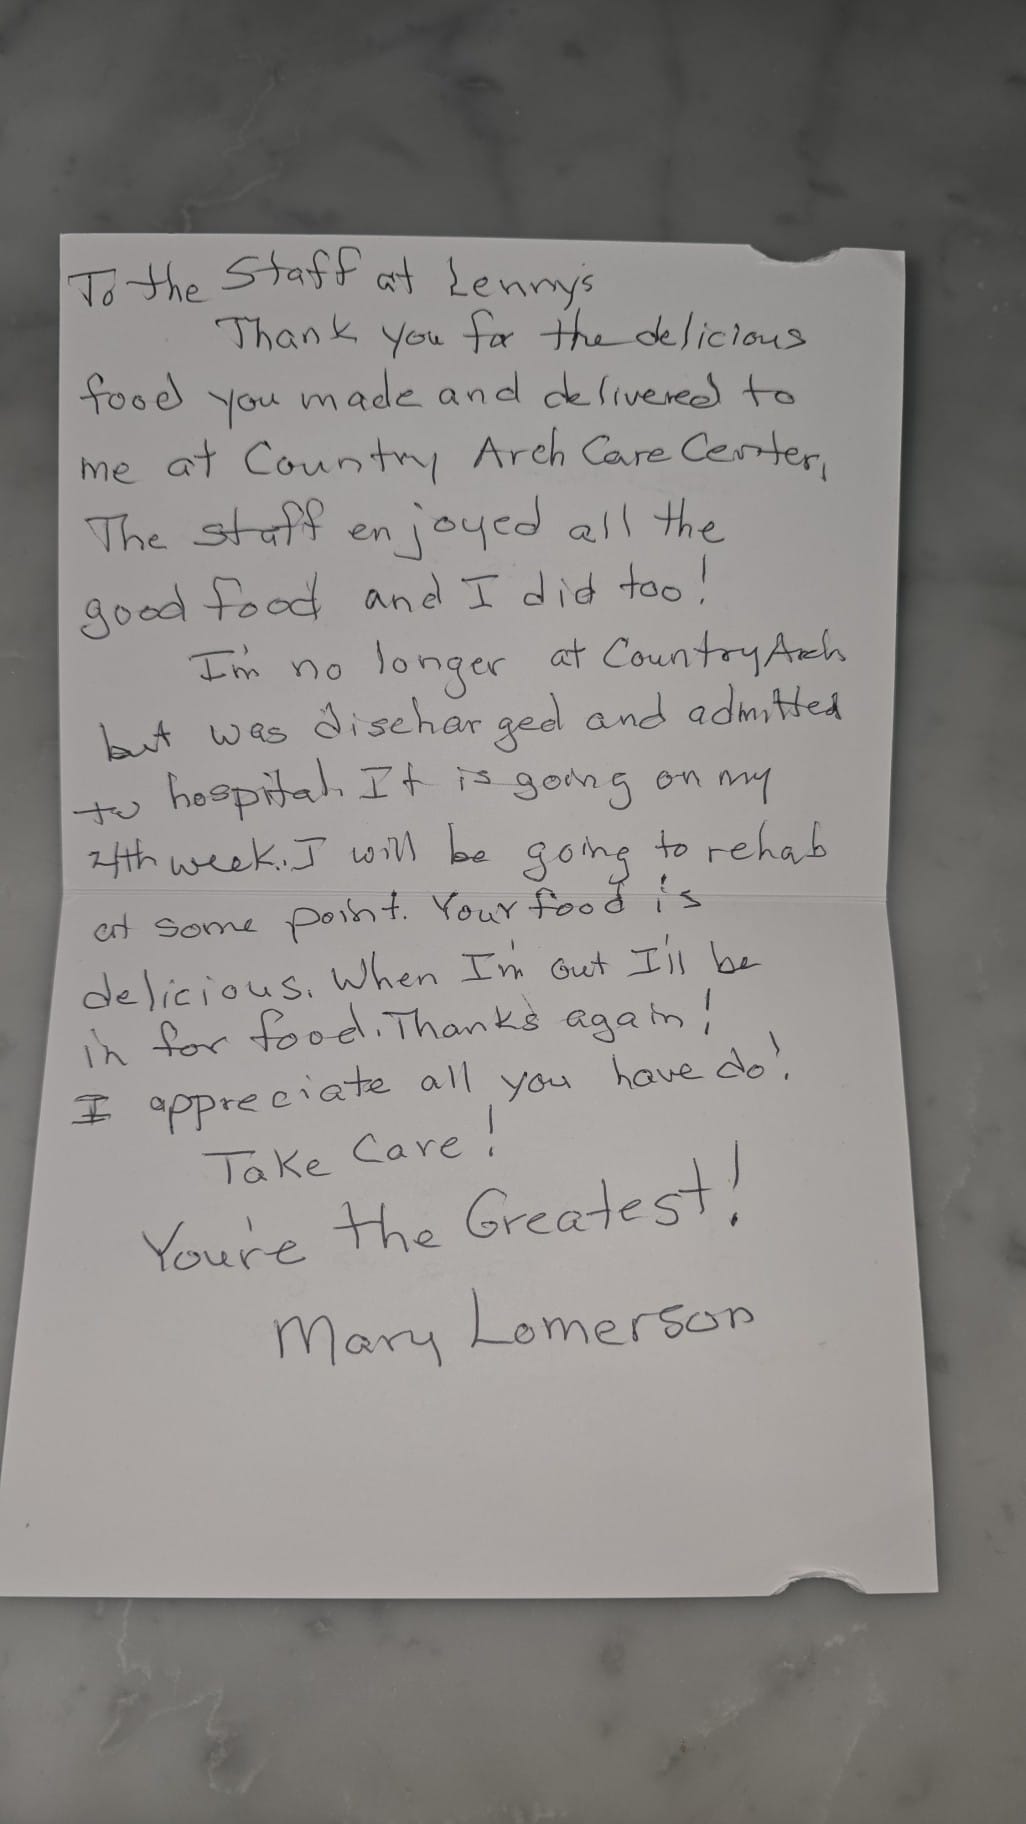 To the Staff at Lenny's
Thank you for the delicious
food you made and delivered to
me at Country Arch Care Center,
The staff enjoyed all the
good food and I did too!
I'm no longer at Country Arch
but was discharged and admitted
to hospital. It is going on my
4th week. I will be going to rehab
at some point. Your food is
delicious. When I'm out I'll be
in for food. Thanks again!
I appreciate all you have do!
Take Care!
You're the Greatest!
Mary Lomerson